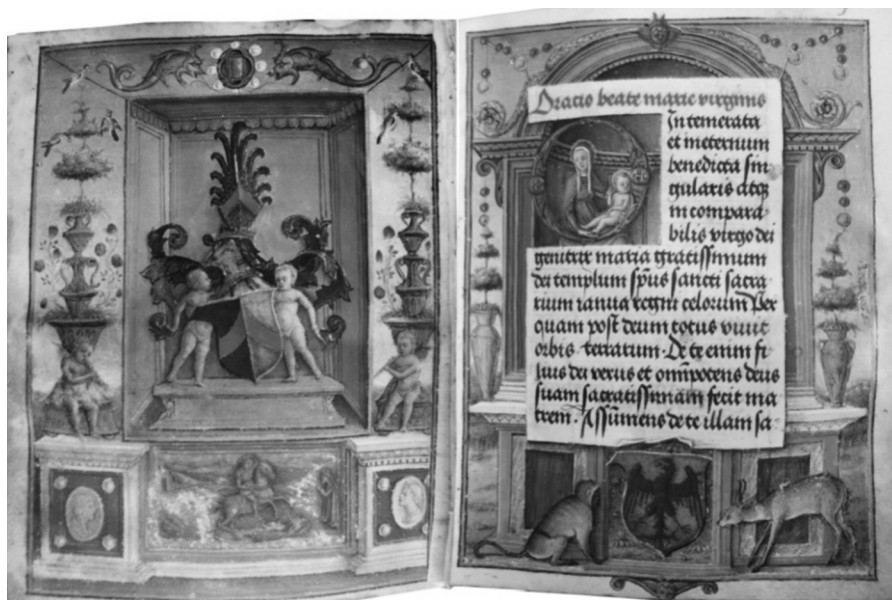 Oratio beate marie virginis
Intemerata
et in eternum
benedicta sin
gularis atq
incompara
bilis virgo dei
genitrix maria gratissimum
dei templum spūs sancti sacra
rium ianua regni celorum Per
quam post deum totus vivit
orbis terrarum. De te enim fi
lius dei verus et omīpotens deus
suam sacratissimam fecit ma
trem. Assumens de te illam sa